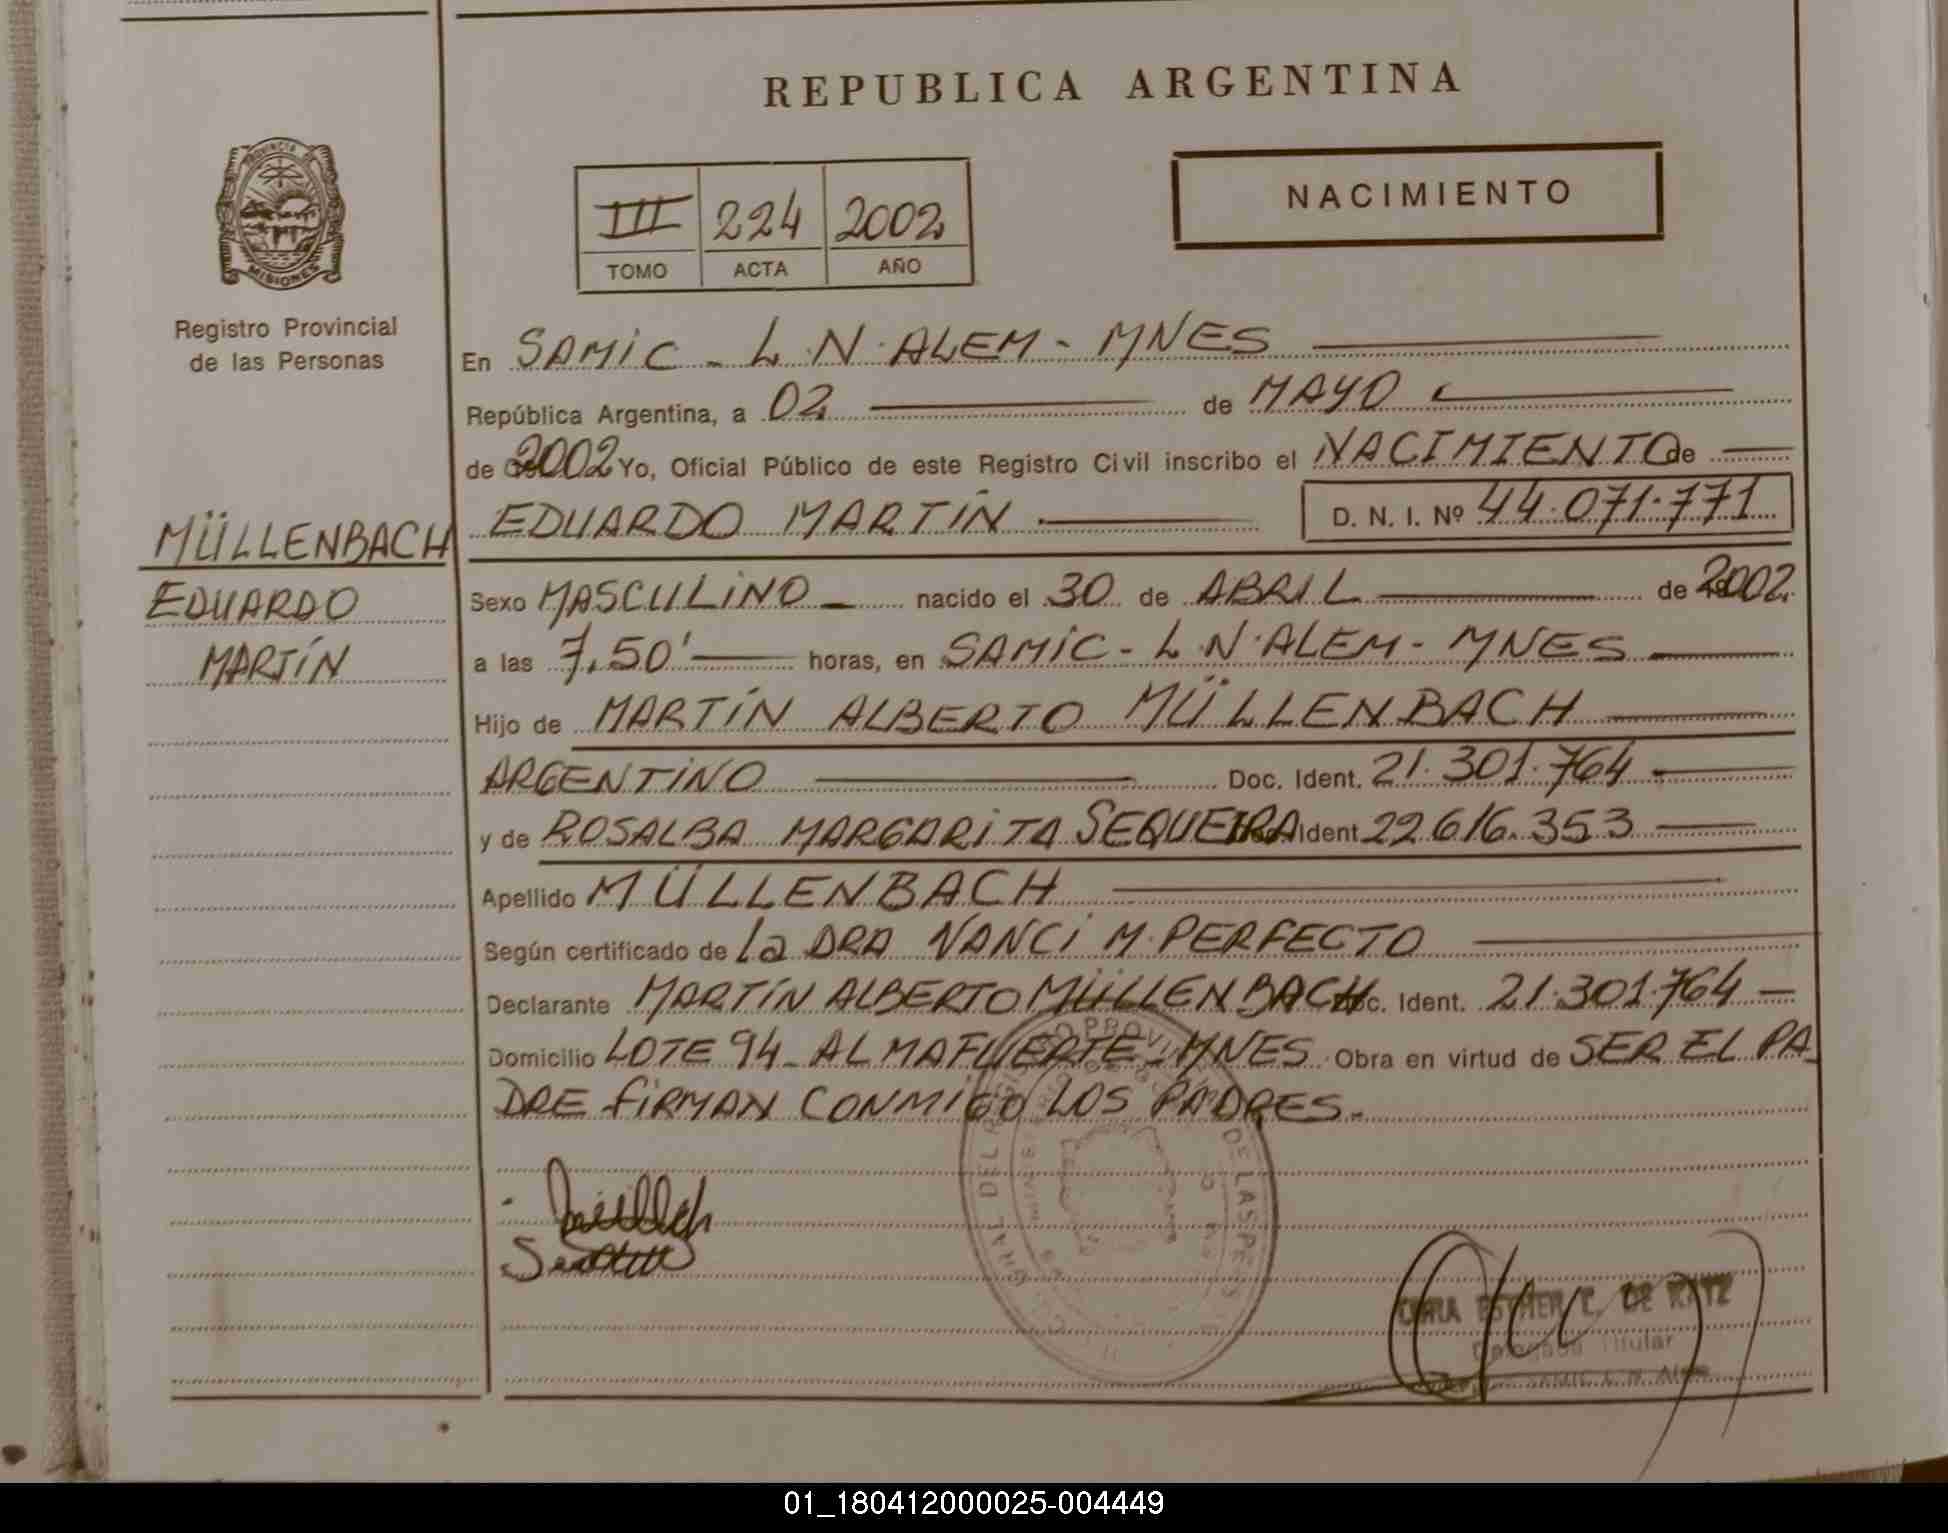 REPUBLICA ARGENTINA
PROVINCIA DE
MISIONES
Registro Provincial
de las Personas
NACIMIENTO
III 224 2002
TOMO ACTA AÑO
MÜLLENBACH
EDUARDO
MARTÍN
En SAMIC - L.N. ALEM - MNES
República Argentina, a 02 de MAYO
de 2002 Yo, Oficial Público de este Registro Civil inscribo el NACIMIENTO de
EDUARDO MARTÍN D. N. I. Nº 44.071.771
Sexo MASCULINO nacido el 30 de ABRIL de 2002
a las 7,50' horas, en SAMIC - L.N. ALEM - MNES
Hijo de MARTÍN ALBERTO MÜLLENBACH
ARGENTINO Doc. Ident. 21.301.764
y de ROSALBA MARGARITA SEQUEIRA Doc. Ident 22.616.353
Apellido MÜLLENBACH
Según certificado de La DRA NANCI M. PERFECTO
Declarante MARTÍN ALBERTO MÜLLENBACH Doc. Ident. 21.301.764
Domicilio LOTE 94 - ALMAFUERTE - MNES. Obra en virtud de SER EL PA
DRE FIRMAN CONMIGO LOS PADRES.
ESTHER E. DE KATZ
Delegada Titular
01_180412000025-004449